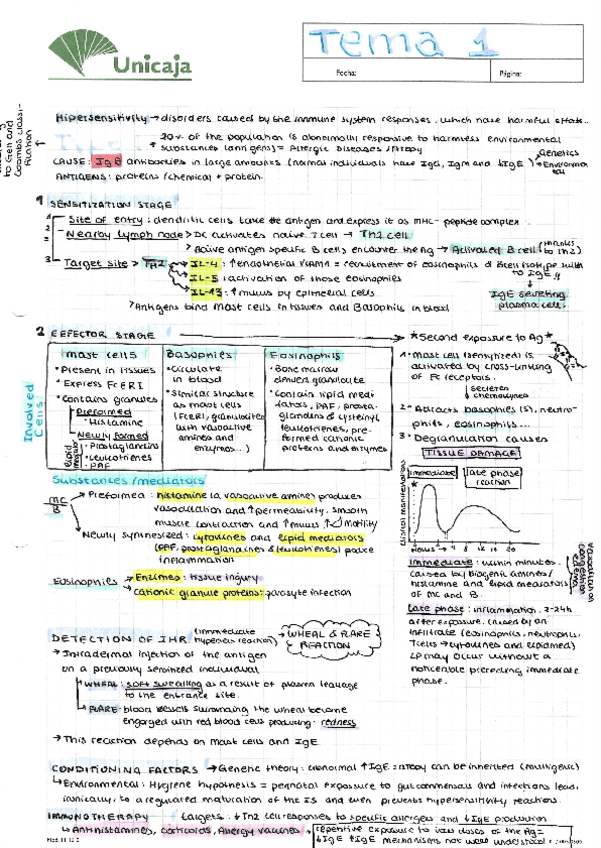 Unicaja
Tema 1
Fecha:
Página:
Hipersensitivity → disorders caused by the immune system responses, which have harmful effects.
to Gell and
Coombs classi-
fication
→ 20% of the population is abnormally responsive to harmless environmental
substances (antigens) = Allergic diseases / Atopy
CAUSE: IgE antibodies in large amounts (normal individuals have IgG, IgM and ↓IgE)
Genetics
ANTIGENS: proteins / chemical + protein.
1 SENSITIZATION STAGE
1 Site of entry: dendritic cells take the antigen and express it as MHC-peptide complex
2 Nearby lymph node > DC activates naive T cell → Th2 cell
> Naive antigen specific B cells encounter the Ag → Activated B cell (thanks to Th2)
3 Target site > Th2
IL-4: ↑endothelial VCAM1 = recruitment of eosinophils & B cell isotype switch
to IgE
IL-5: activation of those eosinophils
IL-13: ↑mucus by epithelial cells
IgE secreting
plasma cell
> Antigens bind Mast cells in tissues and Basophils in blood
2 EFFECTOR STAGE
Involved
Cells
Mast cells
• Present in tissues
• Express FcεRI
• Contains granules
Preformed
• Histamine
Newly formed
• Prostaglandins
• Leukotrienes
• PAF
Basophils
• Circulate
in blood
• Similar structure
as mast cells
(FcεRI, granulocites
with vasoactive
amines and
enzymes...)
Eosinophils
• Bone marrow
derived granulocyte
• Contain lipid medi-
ators, PAF, prosta-
glandins & cysteinyl
leukotrienes, pre-
formed cationic
proteins and enzymes
★Second exposure to Ag★
1• Mast cell (sensitized) is
activated by cross-linking
of Fc receptors.
↓ secretes
chemokines
2• Attracts basophils (s), neutro-
phils, eosinophils...
3• Degranulation causes
TISSUE DAMAGE
Immediate
late phase
reaction
clinical manifestations
Hours → 4 8 12 16 20
Immediate: within minutes.
caused by biogenic amines/
histamine and lipid mediators
of MC and B.
vasodilation
congestion
edema
Late phase: inflammation. 2-24h
after exposure. caused by an
infiltrate (eosinophils, neutrophils,
Tcells → cytokines and
↳may occur without a
noticeable preceding immediate
phase.
Substances/mediators
MC/B
→ Preformed: histamine (a vasoactive amine) produces
vasodilation and ↑permeability. smooth
muscle contraction and ↑mucus, ↑motility
→ Newly synthesized: cytokines and lipid mediators
(PAF, prostaglandines & leukotrienes) pause
inflammation
Eosinophils → Enzymes: tissue injury
→ cationic granule proteins: parasyte infection
DETECTION OF IHR (immediate
hypersens reaction) → WHEAL & FLARE
REACTION
→ Intradermal injection of the antigen
on a previously sensitized individual
→ WHEAL: soft swealling as a result of plasma leakage
to the entrance site.
→ FLARE: blood vessels surrounding the wheal become
engorged with red blood cells producing redness
→ This reaction depends on mast cells and IgE
CONDITIONING FACTORS → Genetic theory: abnormal ↑IgE = atopy can be inherited (multigenic)
↳ Environmental: Hygiene hypothesis = perinatal exposure to gut commensals and infections lead,
ironically, to a regulated maturation of the IS and even prevents hypersensitivity reactions.
IMMUNOTHERAPY targets: ↓Th2 cell responses to specific allergens and ↓IgE production
↳ Antihistamines, corticoids, Allergy vaccines
repetitive exposure to low doses of the Ag =
↓IgE ↑IgG mechanisms not well understood!